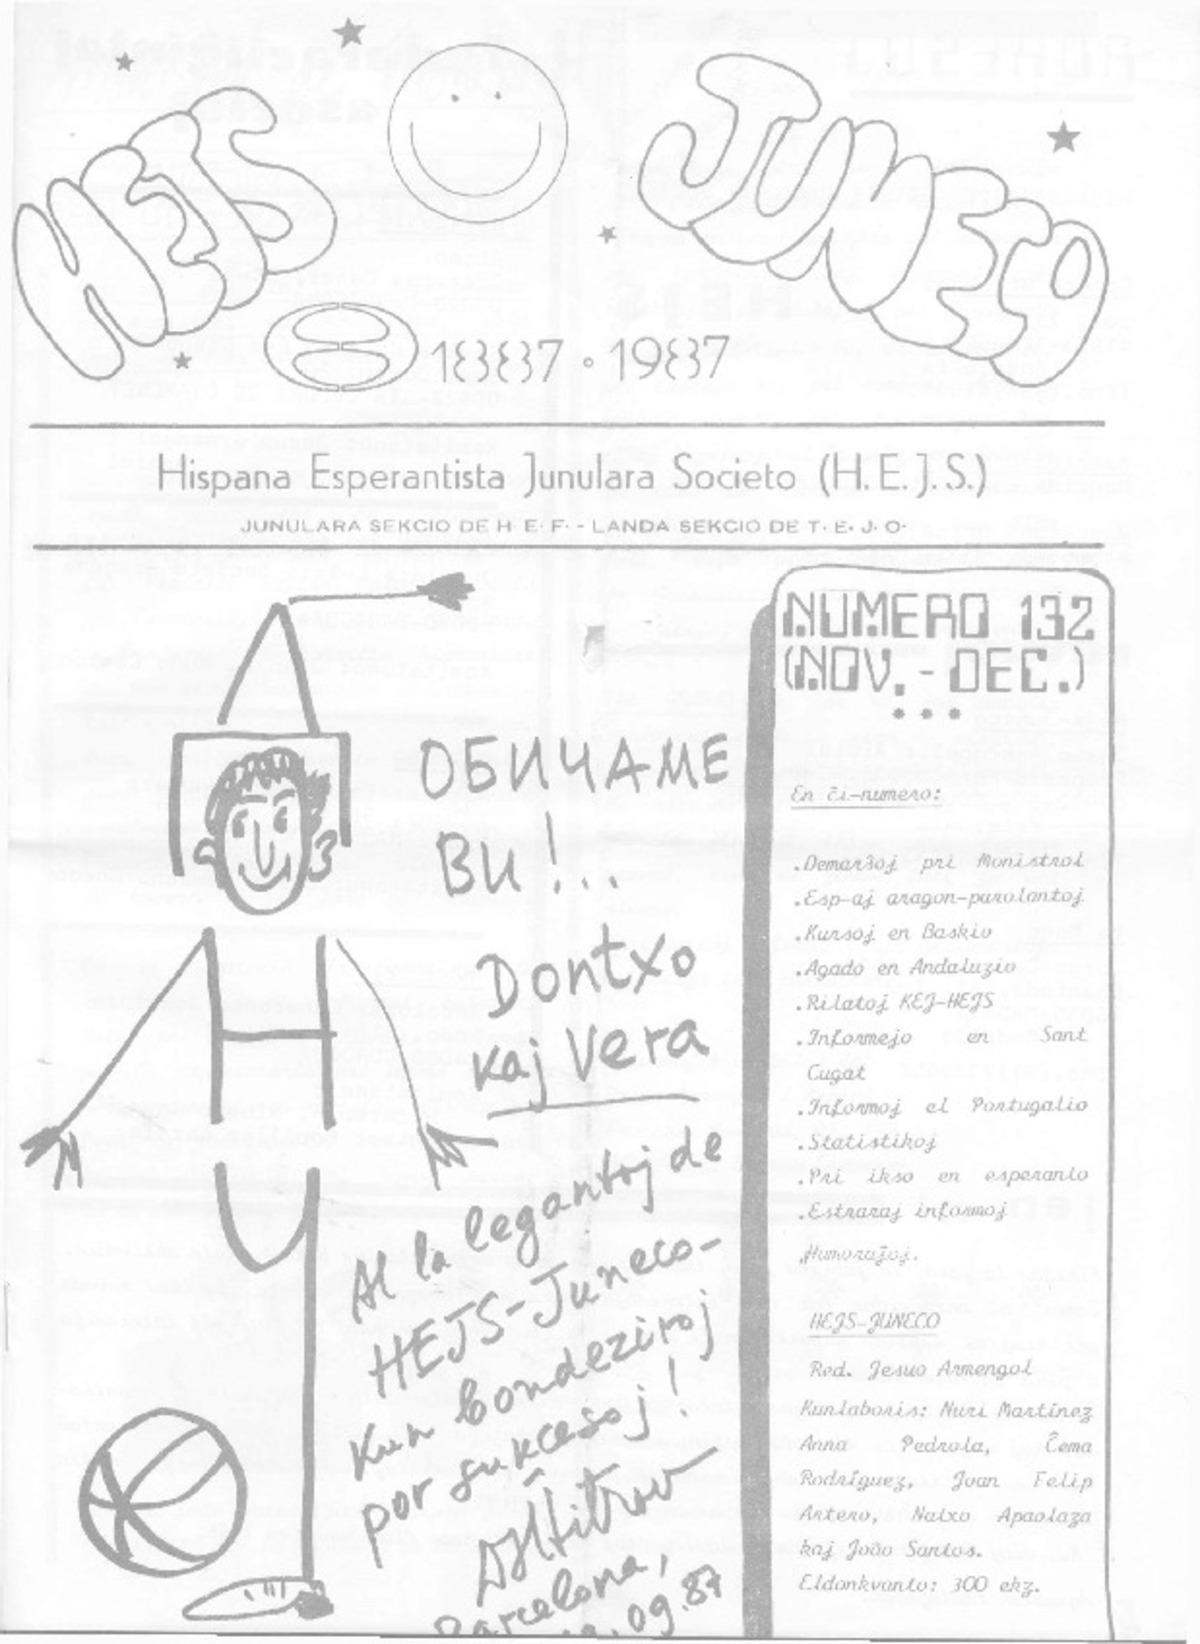 HEJS
JUNECO
1887 • 1987
Hispana Esperantista Junulara Societo (H.E.J.S.)
JUNULARA SEKCIO DE H·E·F· - LANDA SEKCIO DE T·E·J·O·
ОБИЧАМЕ
ВИ!...
Dontxo
kaj Vera
Al la legantoj de
HEJS-Juneco-
Kun bondeziroj
por sukcesoj!
Barcelona,
.09.87
NUMERO 132
(NOV. - DEC.)
En ĉi-numero:
.Demarŝoj pri Monistrol
.Esp-aj aragon-parolantoj
.Kursoj en Baskio
.Agado en Andaluzio
.Rilatoj KEJ-HEJS
.Informejo en Sant
Cugat
.Informoj el Portugalio
.Statistikoj
.Pri ikso en esperanto
.Estraraj informoj
.Humoraĵoj.
HEJS-JUNECO
Red. Jesuo Armengol
Kunlaboris: Nuri Martínez
Anna Pedrola, Ĉema
Rodríguez, Joan Felip
Artero, Natxo Apaolaza
kaj João Santos.
Eldonkvanto: 300 ekz.